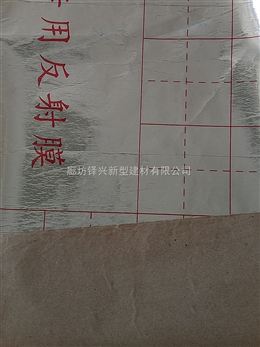 专用反射膜
廊坊铎兴新型建材有限公司